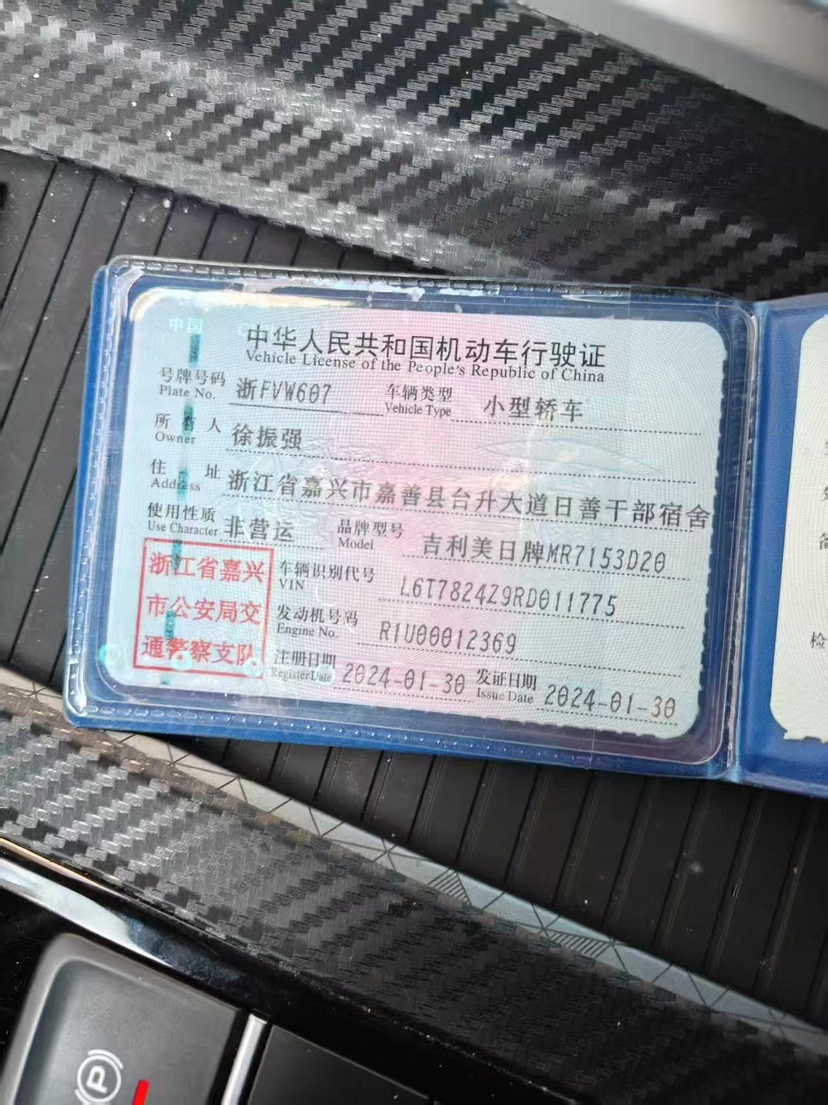 中国
中华人民共和国机动车行驶证
Vehicle License of the People's Republic of China
号牌号码 浙FVW607 车辆类型 小型轿车
Plate No. Vehicle Type
所有人 徐振强
Owner
住址 浙江省嘉兴市嘉善县台升大道日善干部宿舍
Address
使用性质 非营运 品牌型号 吉利美日牌MR7153D20
Use Character Model
浙江省嘉兴
市公安局交
通警察支队
车辆识别代号 L6T7824Z9RD011775
VIN
发动机号码 RIU00012369
Engine No.
注册日期 2024-01-30 发证日期 2024-01-30
Register Date Issue Date
检
P